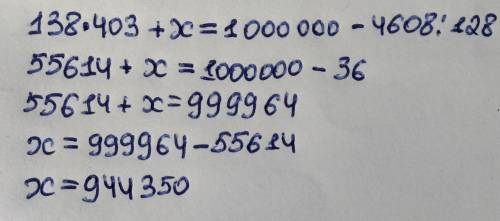 138·403 + x = 1000 000 - 4608:128
55614 + x = 1000000 - 36
55614 + x = 999964
x = 999964 - 55614
x = 944350